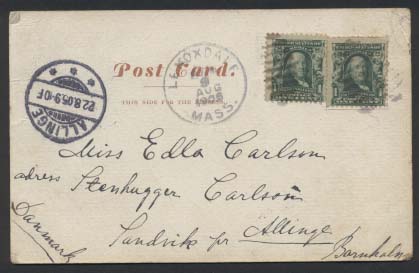 LENOXDALE
AUG
MASS.
Post Card.
THIS SIDE FOR THE
ALLINGE
22.8.05.9-10F
Miss Edla Carlson
adress Stenhugger Carlson
Sandvik pr Allinge
Danmark
Bornholm